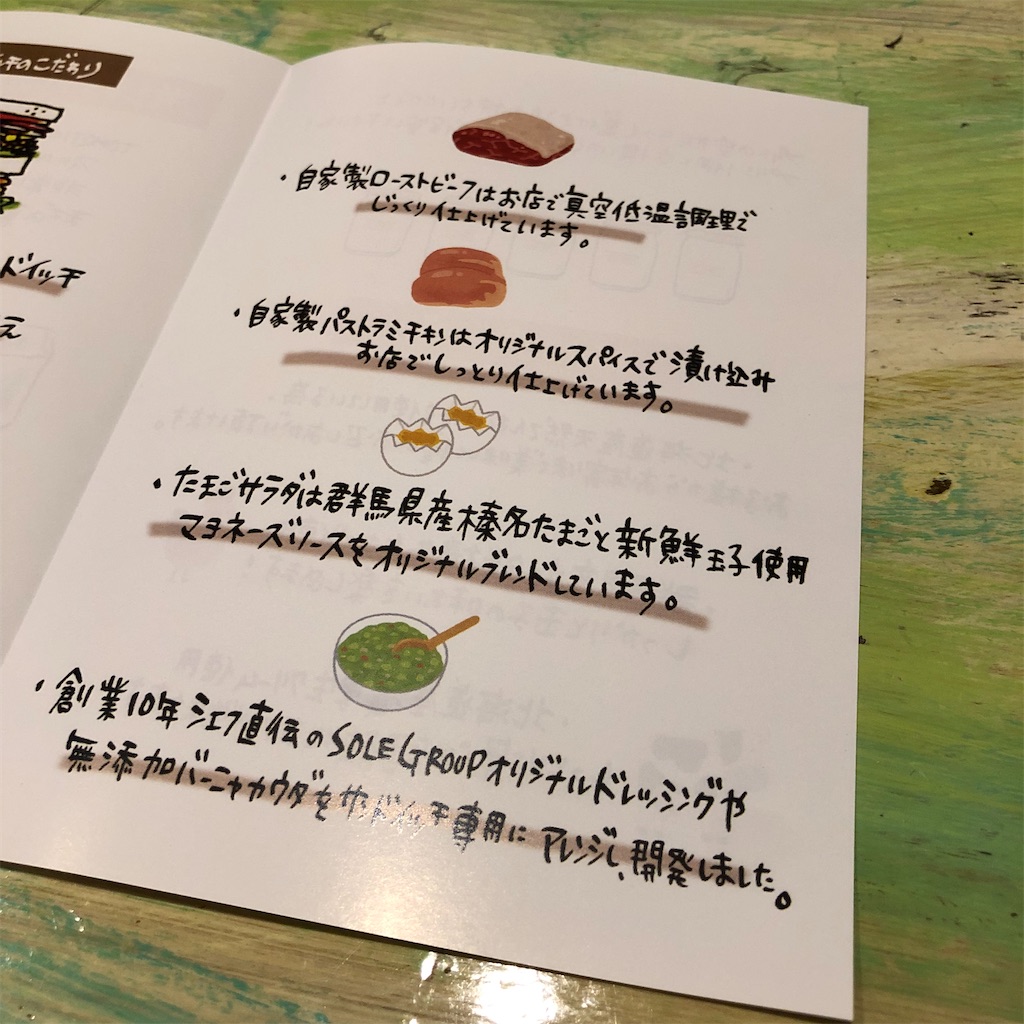 チのこだわり
ドイッチ
え
・自家製ローストビーフはお店で真空低温調理で
じっくり仕上げています。
・自家製パストラミチキンはオリジナルスパイスで漬け込み
お店でしっとり仕上げています。
・たまごサラダは群馬県産榛名たまごと新鮮玉子使用
マヨネーズソースをオリジナルブレンドしています。
・創業10年シェフ直伝のSOLE GROUPオリジナルドレッシングや
無添加バーニャカウダをサンドイッチ専用にアレンジし、開発しました。